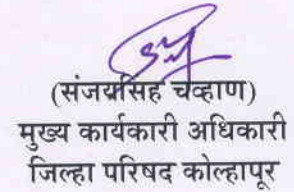 (संजयसिंह चव्हाण)
मुख्य कार्यकारी अधिकारी
जिल्हा परिषद कोल्हापूर